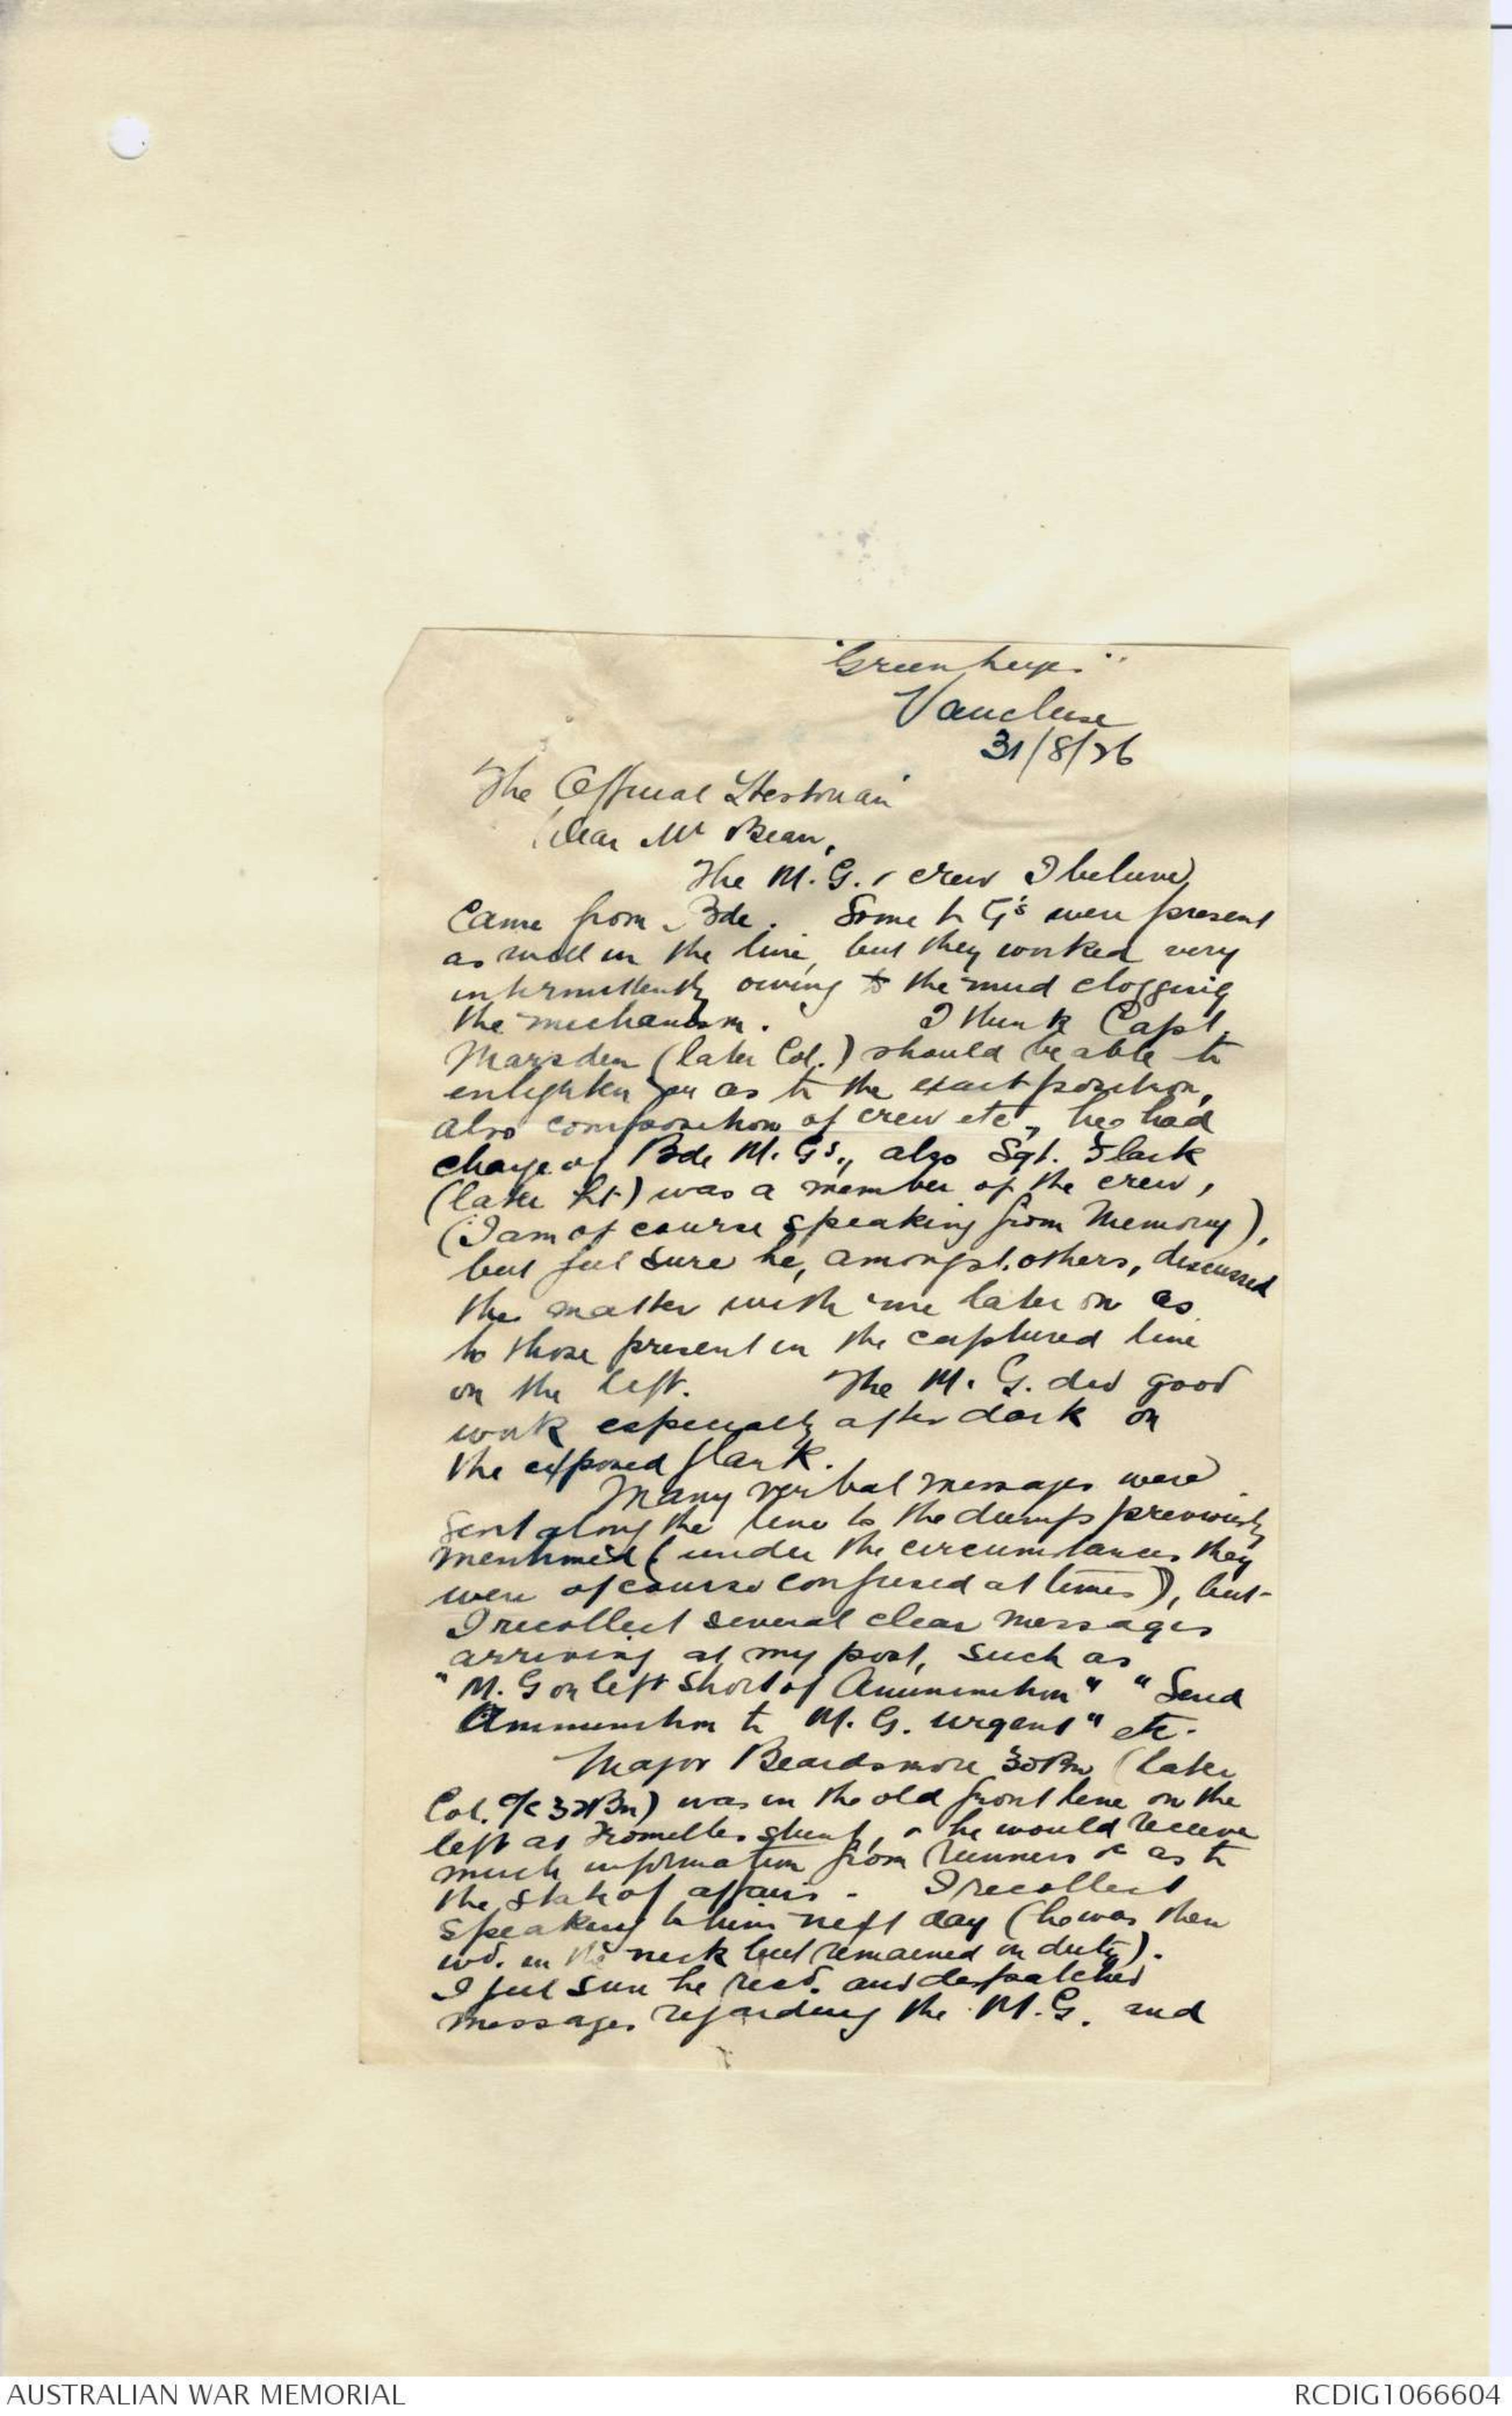 Vaucluse
31/8/26
The Official Historian
Dear Mr Bean,
The M.G. & crew I believe
came from Bde. Some L G's were present
as well in the line, but they worked very
intermittently owing to the mud clogging
the mechanism. I think Capt.
Marsden (later Col.) should be able to
enlighten you as to the exact position,
also composition of crew etc, he had
charge of Bde M.Gs., also Sgt. Flack
(later Lt) was a member of the crew,
(I am of course speaking from Memory),
but feel sure he, amongst others, discussed
the matter with me later on as
to those present in the captured line
on the left. The M.G. did good
work especially after dark on
the exposed flank.
Many verbal messages were
sent along the line to the dumps previously
mentioned (under the circumstances they
were of course confused at times), but
I recollect several clear messages
arriving at my post, such as
"M.G on left short of Ammunition" "Send
Ammunition to M.G. urgent" etc.
Major Beardsmore 30Bn (later
Col. O/C 32Bn) was in the old front line on the
left at Fromelles stunt, & he would receive
much information from runners & as to
the state of affairs. I recollect
speaking to him next day (he was then
wd. in the neck but remained on duty).
I feel sure he recd. and despatched
messages regarding the M.G. and
AUSTRALIAN WAR MEMORIAL
RCDIG1066604